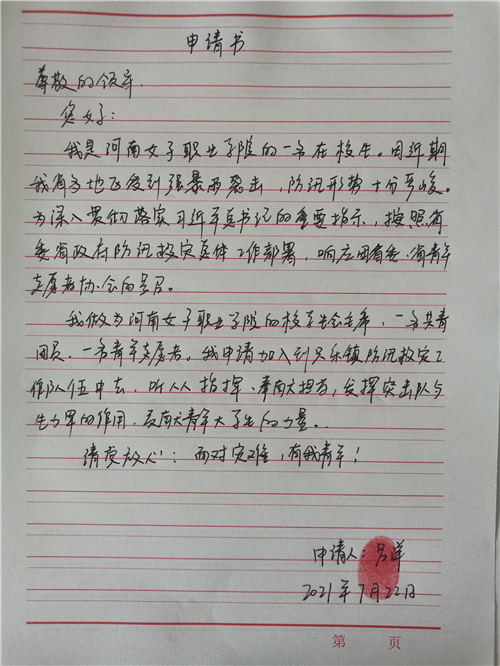 申请书
尊敬的领导:
您好:
我是河南女子职业学院的一名在校生。因近期
我省多地区受到强暴雨袭击,防汛形势十分严峻。
为深入贯彻落实习近平总书记的重要指示,按照省
委省政府防汛救灾具体工作部署,响应团省委、省青年
志愿者协会的号召。
我做为河南女子职业学院的校学生会主席,一名共青
团员、一名青年志愿者。我申请加入到只乐镇防汛救灾工
作队伍中去,听从指挥、勇于担当,发挥突击队与
生力军的作用,贡献青年大学生的力量。
请党放心:面对灾难,有我青年!
申请人:吕洋
2021年7月22日
第 页